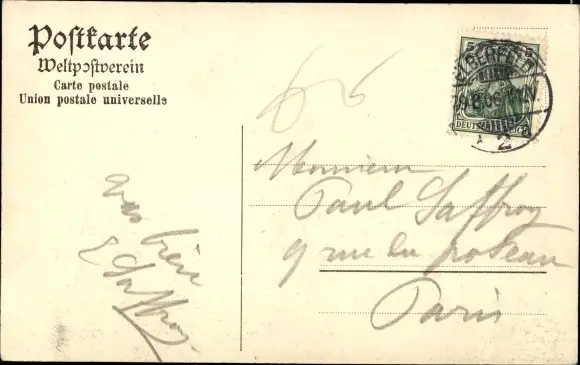 Postkarte
Weltpostverein
Carte postale
Union postale universelle
66
5 5
ELBERFELD
2
DEUTSCHES REICH
Monsieur
Paul Saffroy
9 rue du poteau
Paris
bien
Saffroy